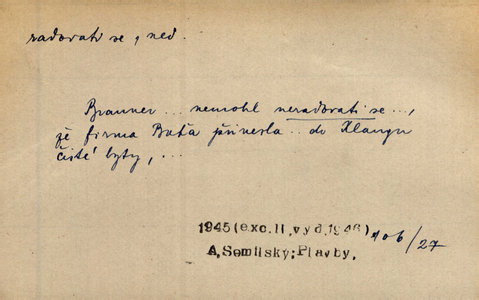 radovati se, ned.
Brauner ... nemohl neradovati se ...,
že firma Baťa přinesla .. do Klangu
čisté byty, ...
1945 (exc. II, vyd. 1946) 106/27
A. Semilský: Plavby.